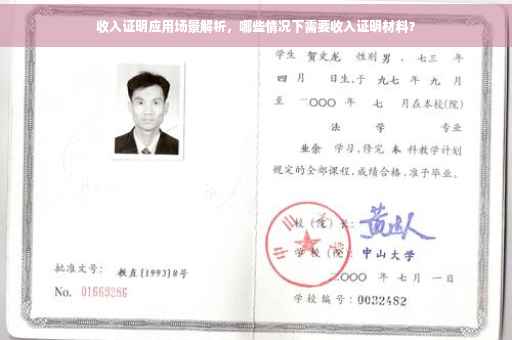 收入证明应用场景解析，哪些情况下需要收入证明材料？
学生 贺文龙 性别 男 、七三 年
四 月 日生,于 九七 年 九 月
至 二〇〇〇 年 七 月在本校(院)
法 学 专业
业余 学习,修完 本 科教学计划
规定的全部课程,成绩合格,准予毕业。
校 (院) 长:
学 校 (院): 中山大学
二〇〇〇 年 七 月 一日
学校编号: 0032482
批准文号: 教直[1993]8号
No. 01669286